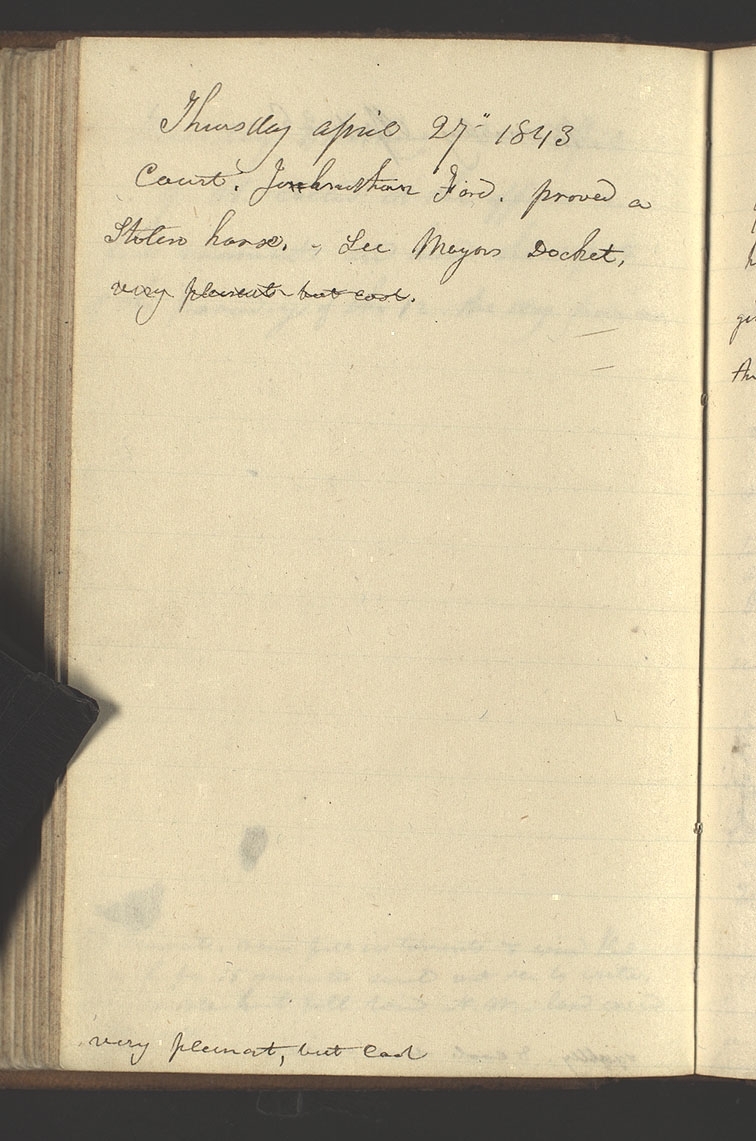 Thursday april 27" 1843
Court. Jonathan Ford. proved a
Stolen horse. - See Mayors Docket,
very pleasent but cool.
very plesant, but cool